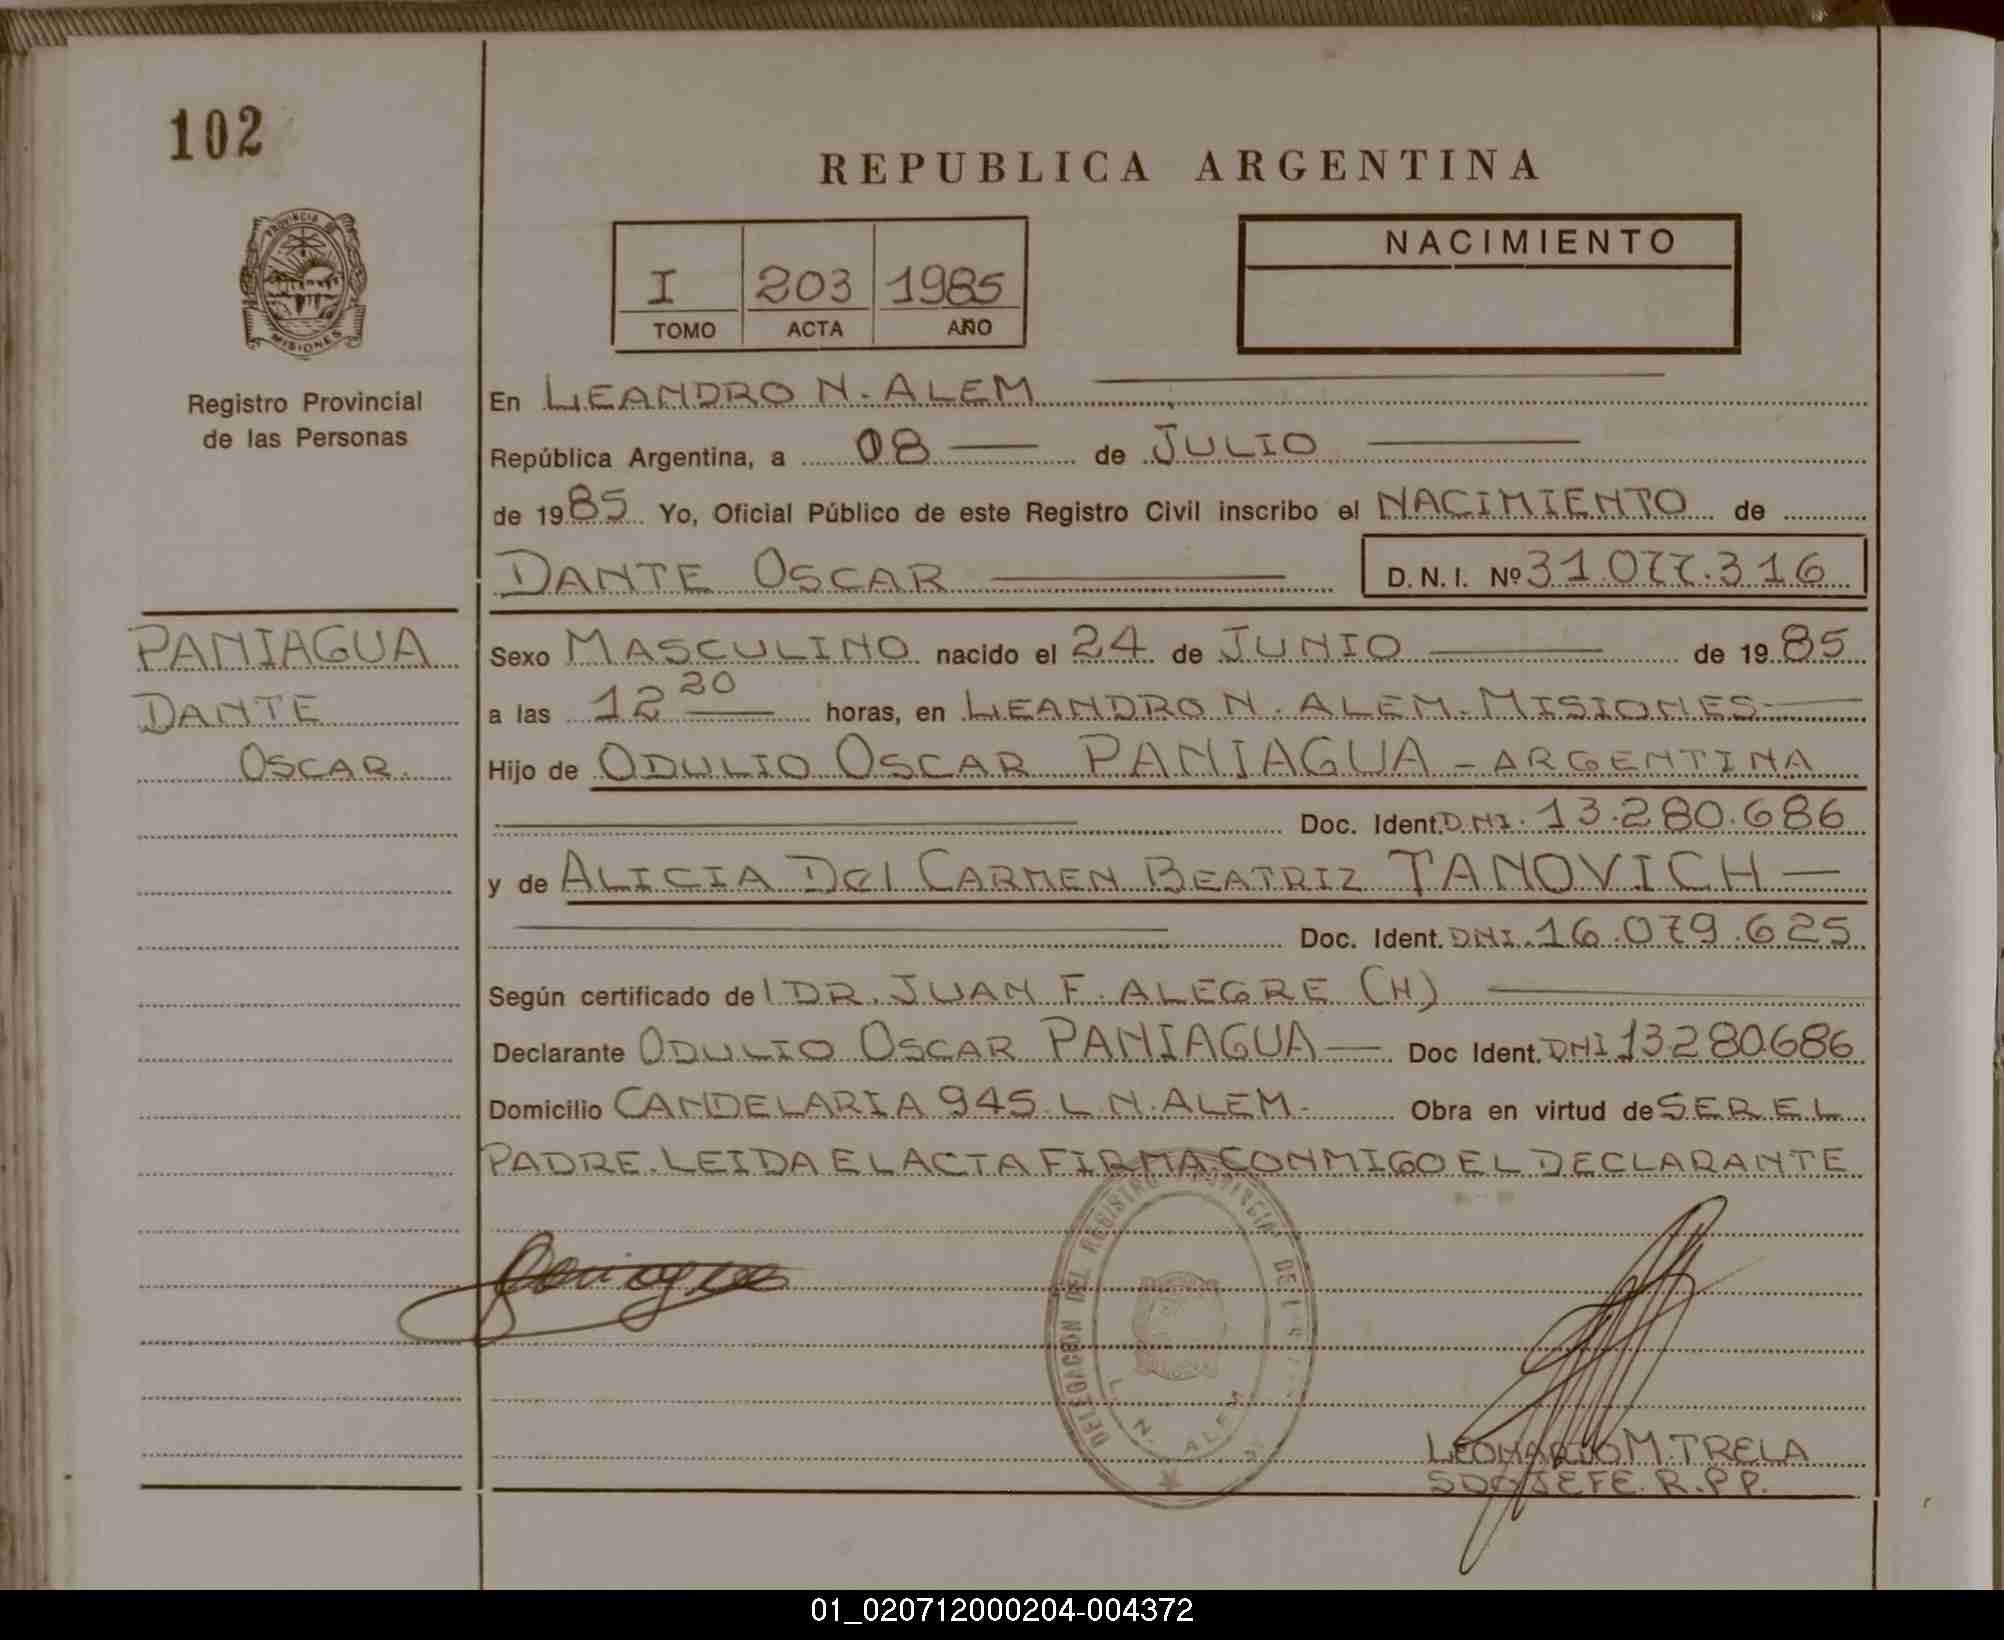 102
REPUBLICA ARGENTINA
PROVINCIA DE
MISIONES
Registro Provincial
de las Personas
I 203 1985
TOMO ACTA AÑO
NACIMIENTO
En LEANDRO N. ALEM
República Argentina, a 08 de JULIO
de 1985 Yo, Oficial Público de este Registro Civil inscribo el NACIMIENTO de
DANTE OSCAR D.N.I. Nº 31.077.316
PANIAGUA
DANTE
OSCAR.
Sexo MASCULINO nacido el 24 de JUNIO de 1985
a las 12 20 horas, en LEANDRO N. ALEM. MISIONES
Hijo de ODULIO OSCAR PANIAGUA - ARGENTINA
Doc. Ident. DNI. 13.280.686
y de ALICIA DEl CARMEN BEATRIZ TANOVICH
Doc. Ident. DNI. 16.079.625
Según certificado del DR. JUAN F. ALEGRE (H)
Declarante ODULIO OSCAR PANIAGUA Doc Ident. DNI 13.280.686
Domicilio CANDELARIA 945. L.N. ALEM. Obra en virtud de SER EL
PADRE. LEIDA EL ACTA FIRMA CONMIGO EL DECLARANTE
Paniagua
DELEGACION DEL REGISTRO PROVINCIAL DE
L. N. ALEM
LEONARDO M. TRELA
JEFE. R.P.P.
01_020712000204-004372